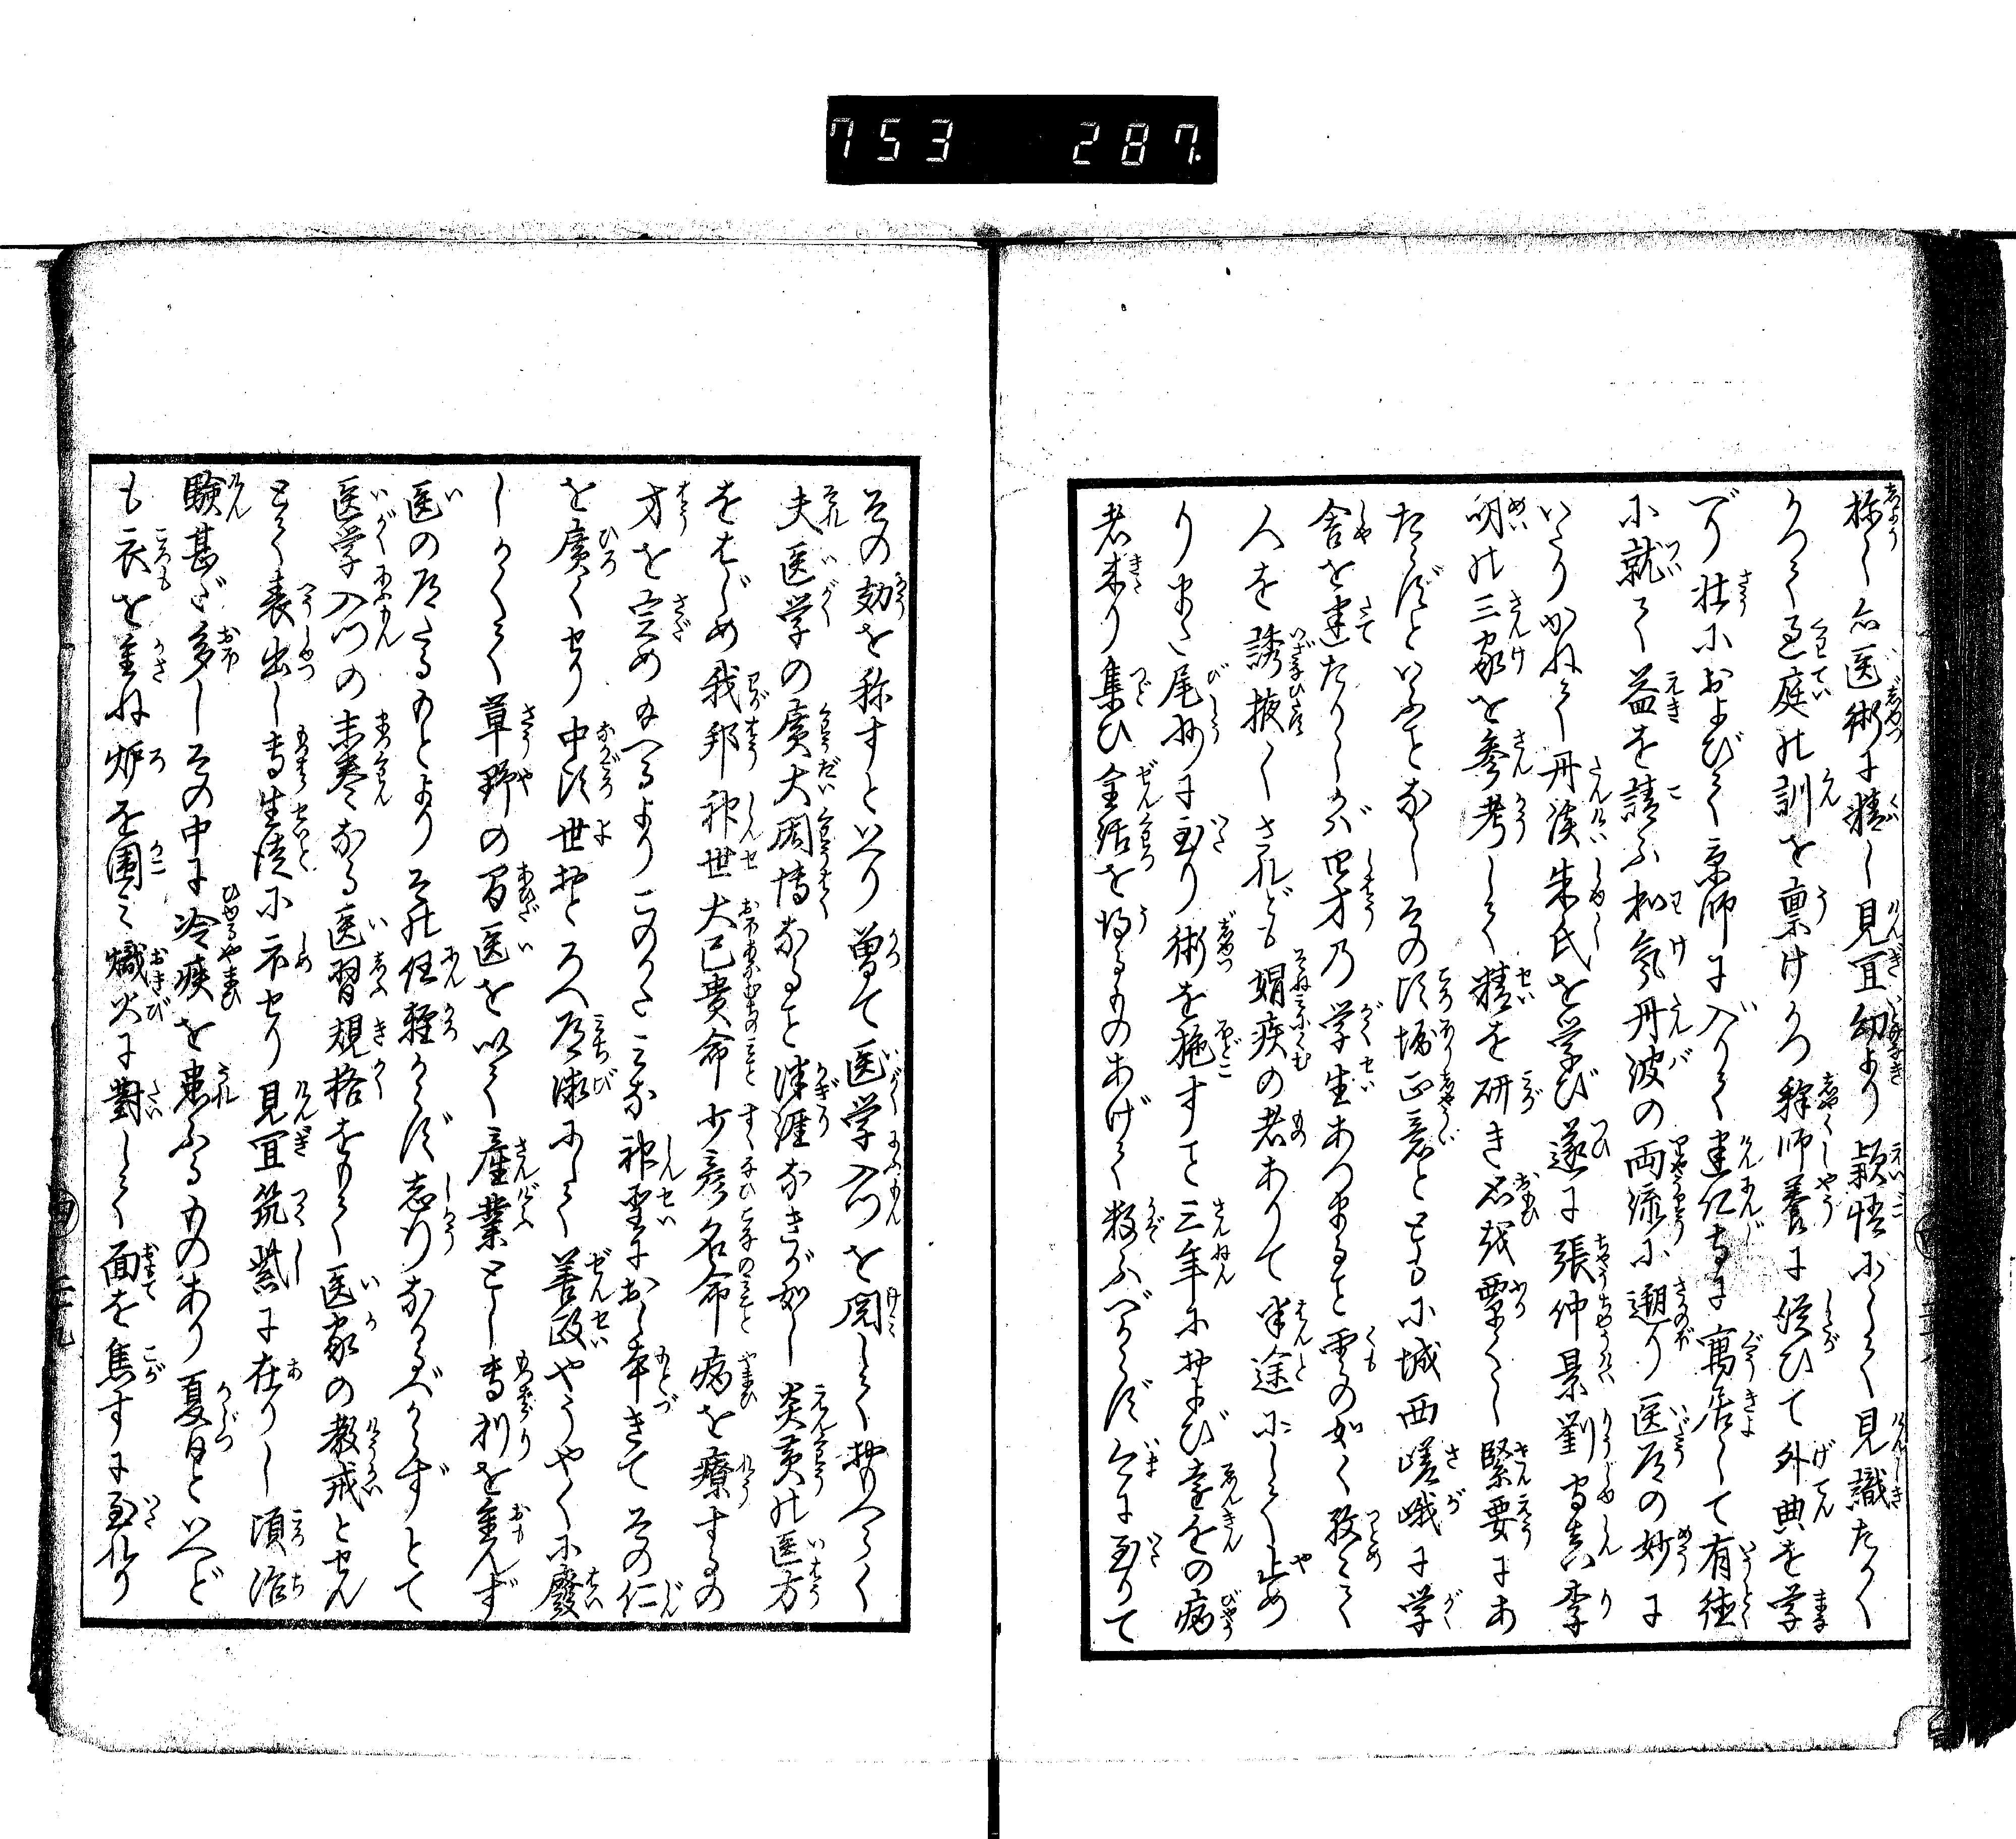 753 287
称し亦医術に精し見宜幼より穎悟にして見識たかく
かつて過庭の訓を稟けかつ釈師養に従ひて外典を学
べり壮におよびて京師に入りて建仁寺に寓居して有徳
に就て益を請ふ和気丹波の両流に遡り医道の妙に
いたりかねて丹渓朱氏を学び遂に張仲景劉守真李
明の三家を参考して精を研き思を覃くし緊要にあ
たらずといふことなしその頃堀正意とともに城西嵯峨に学
舎を建たりしが四方の学生あつまること雲の如く孜々て
人を誘掖しされども媢疾の者ありて半途にして止め
りまた尾州に到り術を施すこと三年におよび遠近の病
者来り集ひ全活を得るものあげて数ふべからず今に至りて
その効を称すといへり曽て医学入門を閲しておもへらく
夫医学の広大周博なること津涯なきが如し炎黄の医方
をはじめ我邦神世大已貴命少彦名命病を療するの
方を定め給へるよりこのかたミな神聖にお基きてその仁
を広くせり中頃世おとろへ道微にして善政やうやくに廃
しかくて草野の間医を以て産業とし専利を重んず
医の道たるもとよりその任軽からず志行なかるべからずとて
医学入門の末巻なる医習規格をもて医家の教戒とせん
とて表出し専生徒に示せり見宜筑紫に在りし頃治
験甚だ多しその中に冷疾を患ふるものあり夏日といへど
も衣を重ね炉を囲ミ熾火に対して面を焦すに至れり